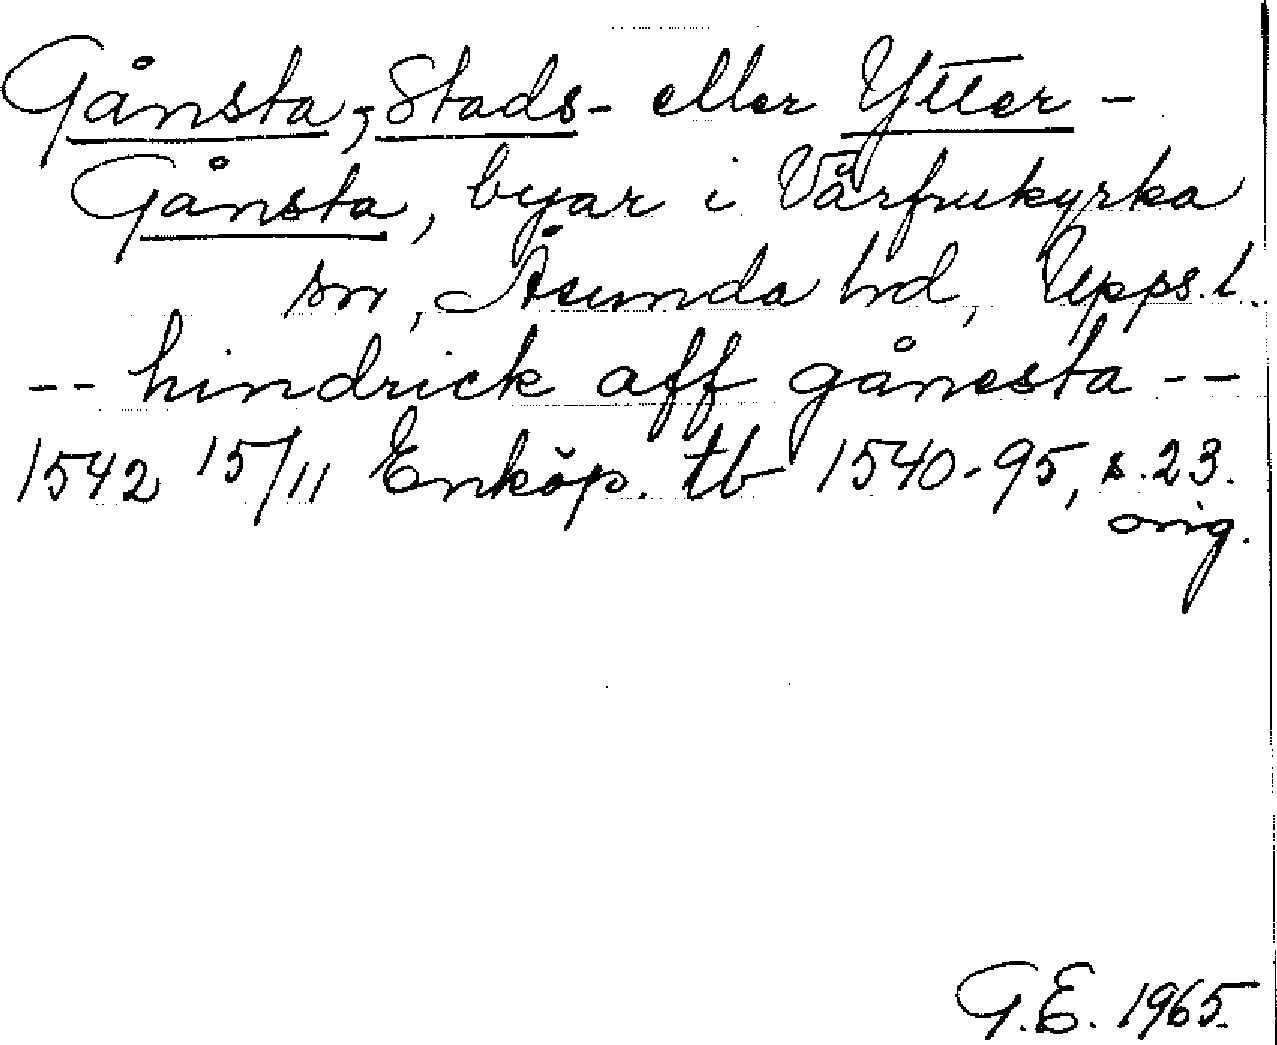 Gånsta, Stads- eller Ytter-
Gånsta, byar i Vårfrukyrka
sn, Åsunda hd, Upps. l.
-- hindrick aff gånesta --
1542 15/11 Enköp. tb 1540-95, s. 23.
orig.
G.E. 1965.